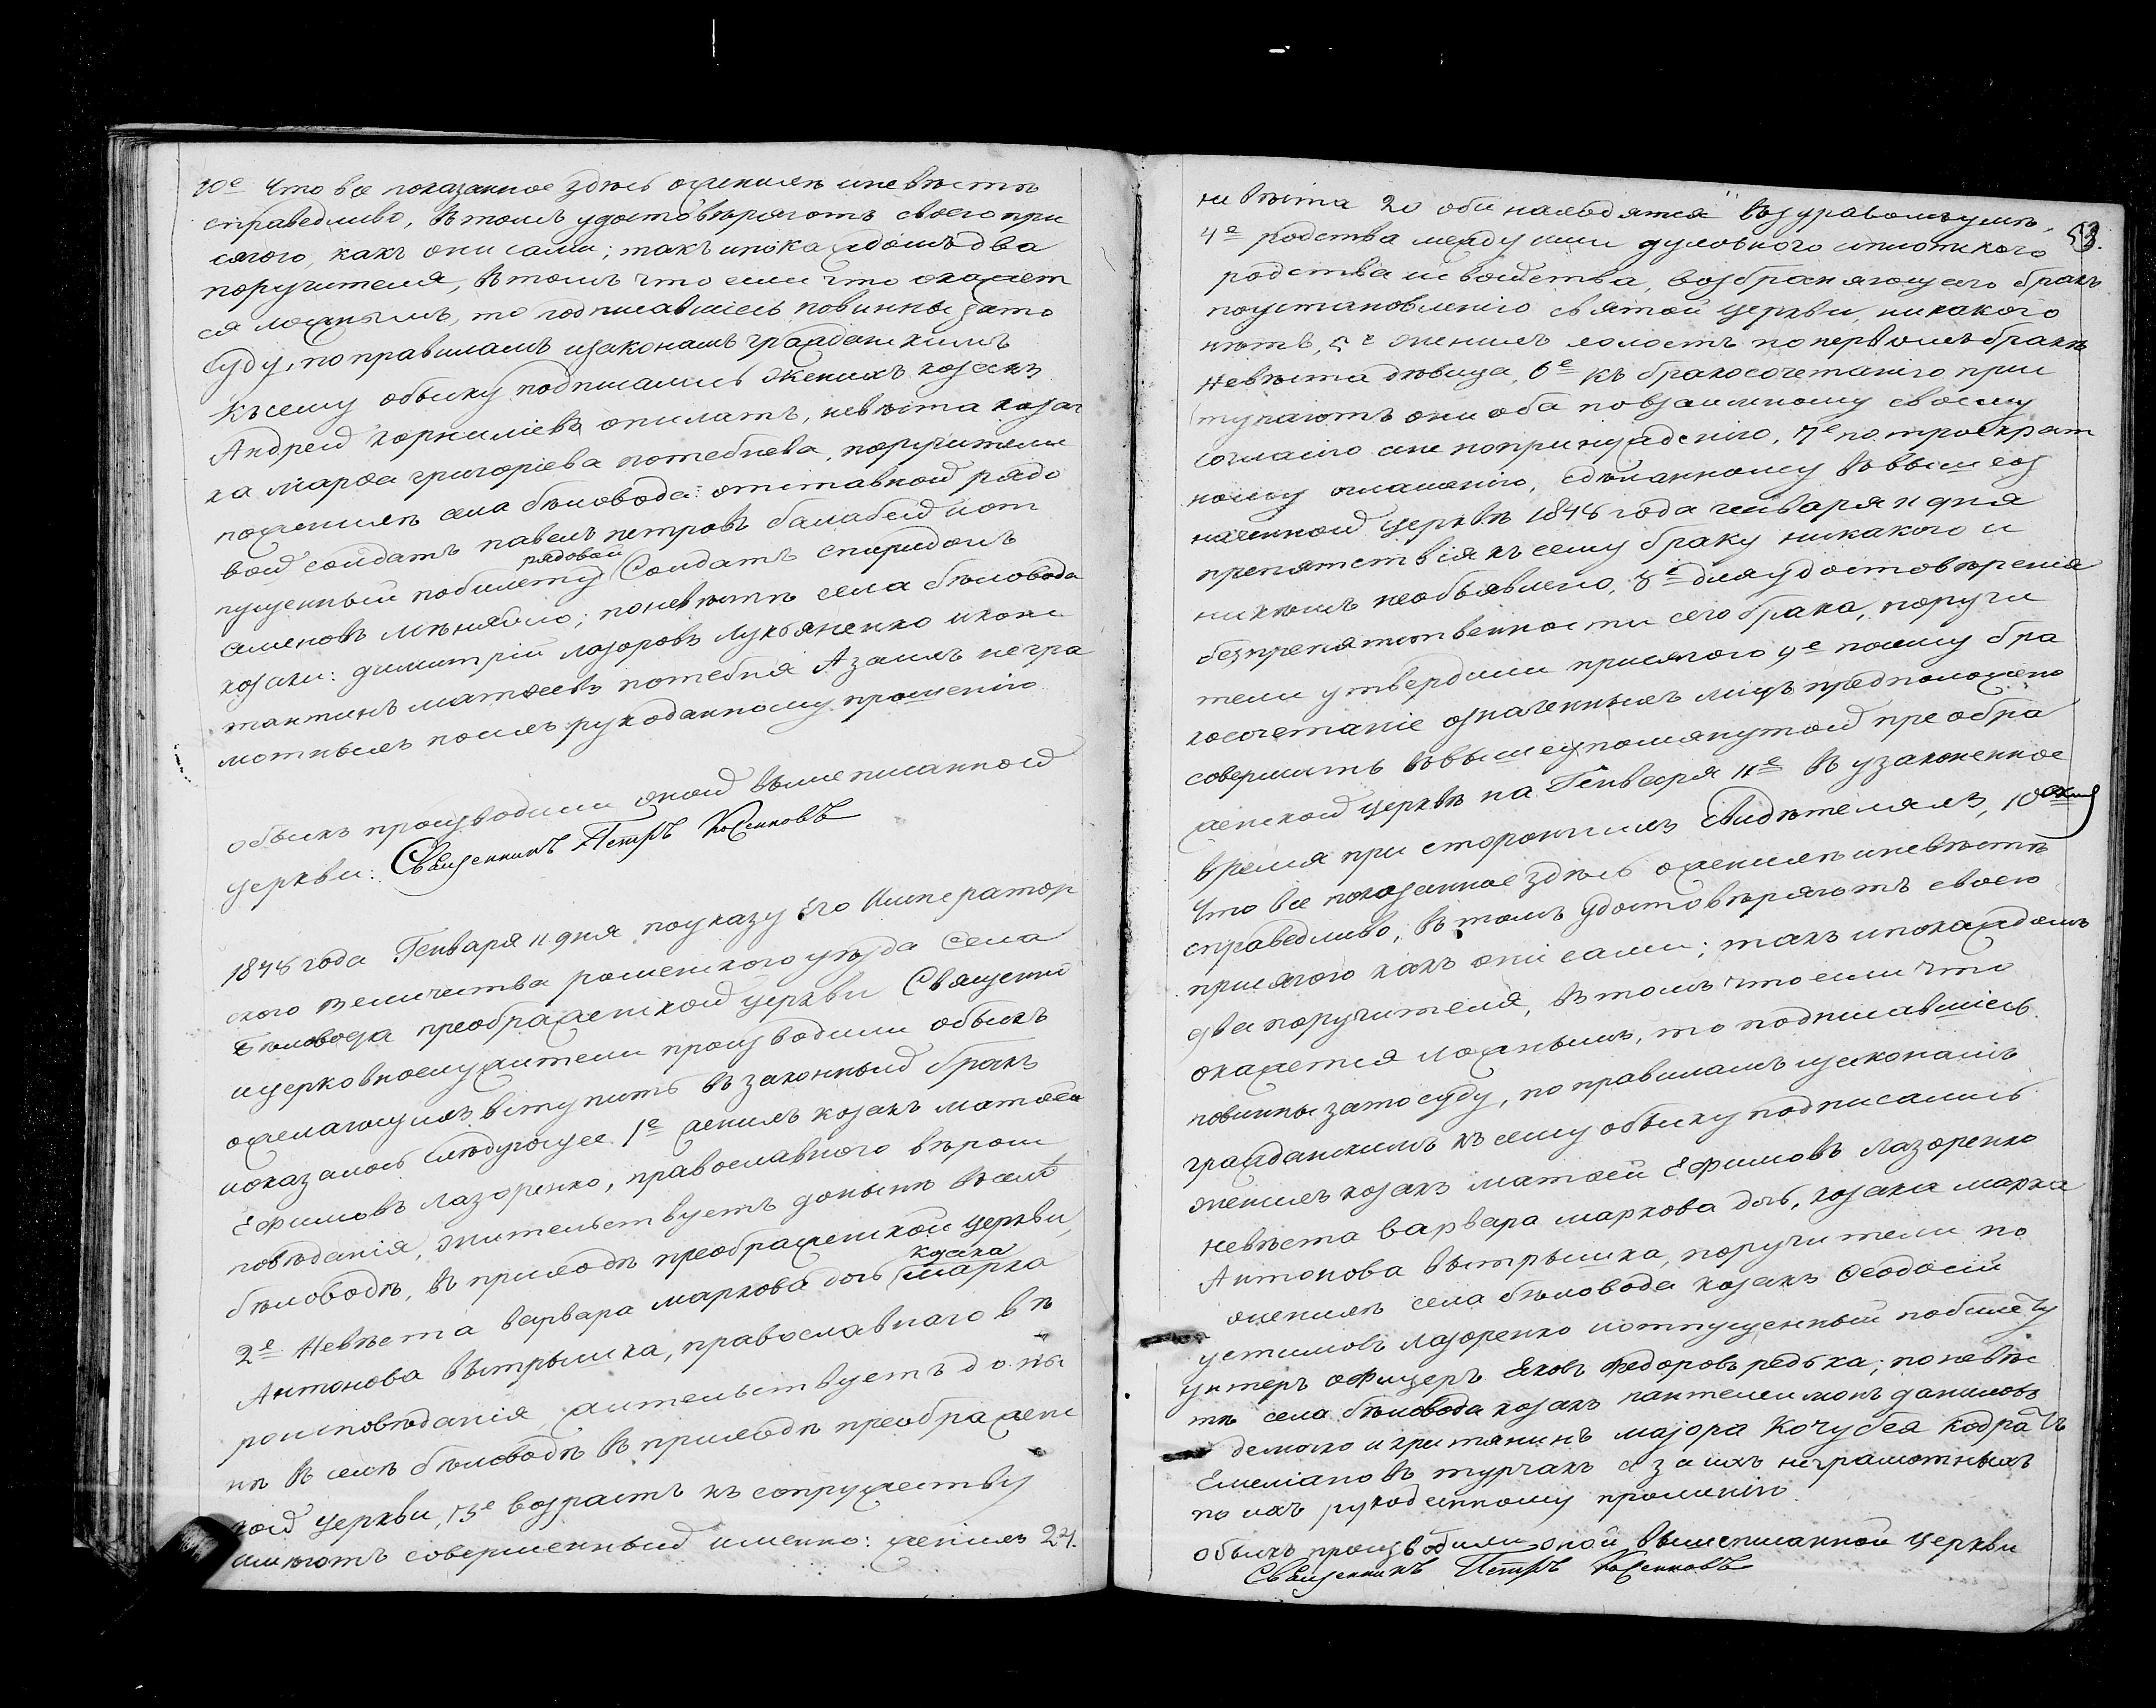 10е Что все показанное здѣсь оженихѣ иневѣстѣ
справедливо, Втомъ удостовѣряютъ своею при
сягою, какъ они сами; такъ ипокаждомъ два
поручителя, Втомъ что если что окажет
ся ложнымъ, то подписавшіесь повинны зато
Суду, поправиламъ изаконамъ гражданскимъ
Ксему обыску подписались Женихъ козакъ
Андрей Корниліевъ невѣста козач
ка Марѳа григоріева потебнева, поручители
поженихѣ села бѣловода: отставной рядо
вой солдатъ павелъ петровъ балабей иот
пущенный побилету рядовой Солдатъ Спиридонъ
Семеновъ Мѣняйло; поневѣстѣ села бѣловода
козаки: димитрій лазоровъ лукьяненко иконс
тантинъ матѳеевъ потебня Азаихъ негра
мотныхъ поихъ рукоданному прошенію
обыскъ производили оной вышеписанной
церкви: Священникъ Петръ
1848 года Генваря 11 дня поуказу Его Император
скаго величества роменского уѣзда Села
бѣловода преображенской церкви Священно
ицерковнослужители производили обыскъ
ожелающихъ вступить взаконный бракъ
иоказалось Слѣдующее 1е женихъ козакъ матѳей
Ефимовъ лазоренко, православного вѣроис
повѣданія, жительствуетъ донынѣ Вселѣ
бѣловодѣ, въ приходѣ преображенской церкви,
2е Невѣста варвара маркова дочь козака марка
Антонова Вытрышка, православнаго вѣ
роисповѣданія жительствуетъ до ны
нѣ В селѣ бѣловодѣ Вприходѣ преображенс
кой церкви, 3е возрастъ къ супружеству
имѣютъ совершенный именно: женихъ 24.
53.
невѣста 20 оби находятся Вздравомъумѣ,
4е родства между ими духовного иплотского
родства исвойства, возбраняющего бракъ
поустановленію святой церкви, никакого
нѣтъ, 5е женихъ холостъ попервомъ бракѣ
Невѣста дѣвица, 6е Къ бракосочетанію прис
тупаютъ они оба повзаимному своему
согласію ане попринужденію, 7е по троекрат
ному оглашенію, сдѣланному Ввышеоз
наченной церквѣ 1848 года генваря 11 дня
препятствія къ сему браку никакого и
никѣмъ необъявлено, 8е дляудостовѣренія
безпрепятственности сего брака, поручи
тели утвердили присягою 9е посему бра
косочетаніе означенныхъ лицъ предположено
совершить Ввышеупомянутой преобра
женской церквѣ на Генваря 11е В узаконенное
время при стороннихъ Свидѣтеляхъ, 10е
Что все показанное здѣсь оженихѣ иневѣстѣ
справедливо, Втомъ удостовѣряютъ своею
присягою какъ они сами; такъ ипокаждомъ
два поручителя, Втомъ что если что
окажется ложнымъ, то подписавшіесь
повинны зато суду, по правиламъ изаконамъ
гражданскимъ къ сему обыску подписались
женихъ козакъ матѳей Ефимовъ лазоренко
невѣста варвара маркова дочь, козака марка
Антонова вытрышка, поручители по
женихѣ села бѣловода козакъ Ѳеодосій
устимовъ лазоренко иотпущенный побилету
Унтеръ офицеръ Яковъ Ѳедоровъ редька; поневѣс
тѣ села бѣловода козакъ пантелеимонъ даниловъ
демочко икрестянинъ маіора Кочубея Кодратъ
Емеліановъ турчакъ а за ихъ неграмотныхъ
по ихъ рукоданному прошенію
обыскъ производили оной вышеписанной церкви
Священникъ Петръ